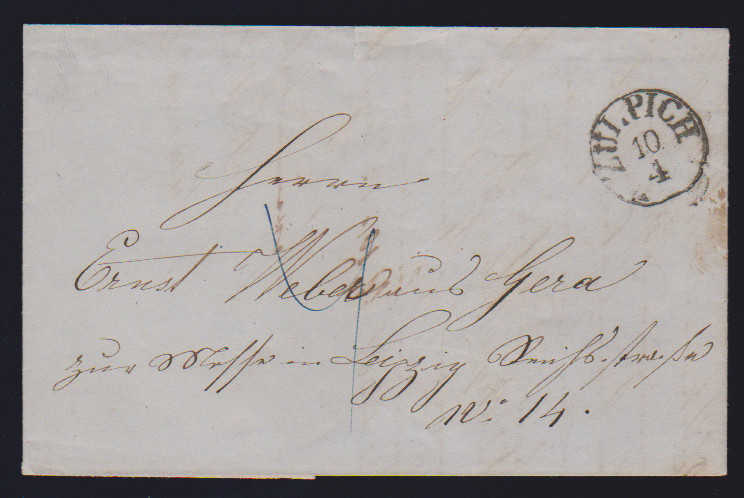 ZÜLPICH
10
4
Herrn
Ernst Weber aus Gera
zur Messe in Leipzig Reichs-straße
No. 14.